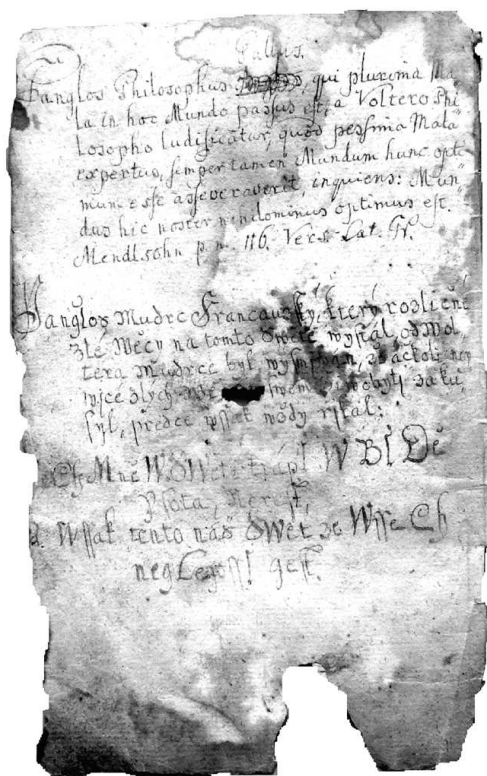 Gallus.
Panglos Philosophus, qui plurima Ma
la in hoc Mundo passus est, a Voltero Phi
losopho ludificatur, quod pessima Mala
expertus, semper tamen Mundum hunc opti
mum esse asseveraverit, inquiens: Mun
dus hic noster nihilominus optimus est.
Mendlsohn p. m. 116. Vers. Lat.
Panglos Mudrc Francauský, který rozličné
zlé Wěcy na tomto Swětě wystál, od Wol
téra Mudrce byl wysmíwán, že ačkoli ney
wjcé zlých
syl, předce wždy
Ch Mně W Swětě trápí W BJDě
Psota, Nerest,
Wssak tento náš SWět ze WsseCh
negLepssj gest.